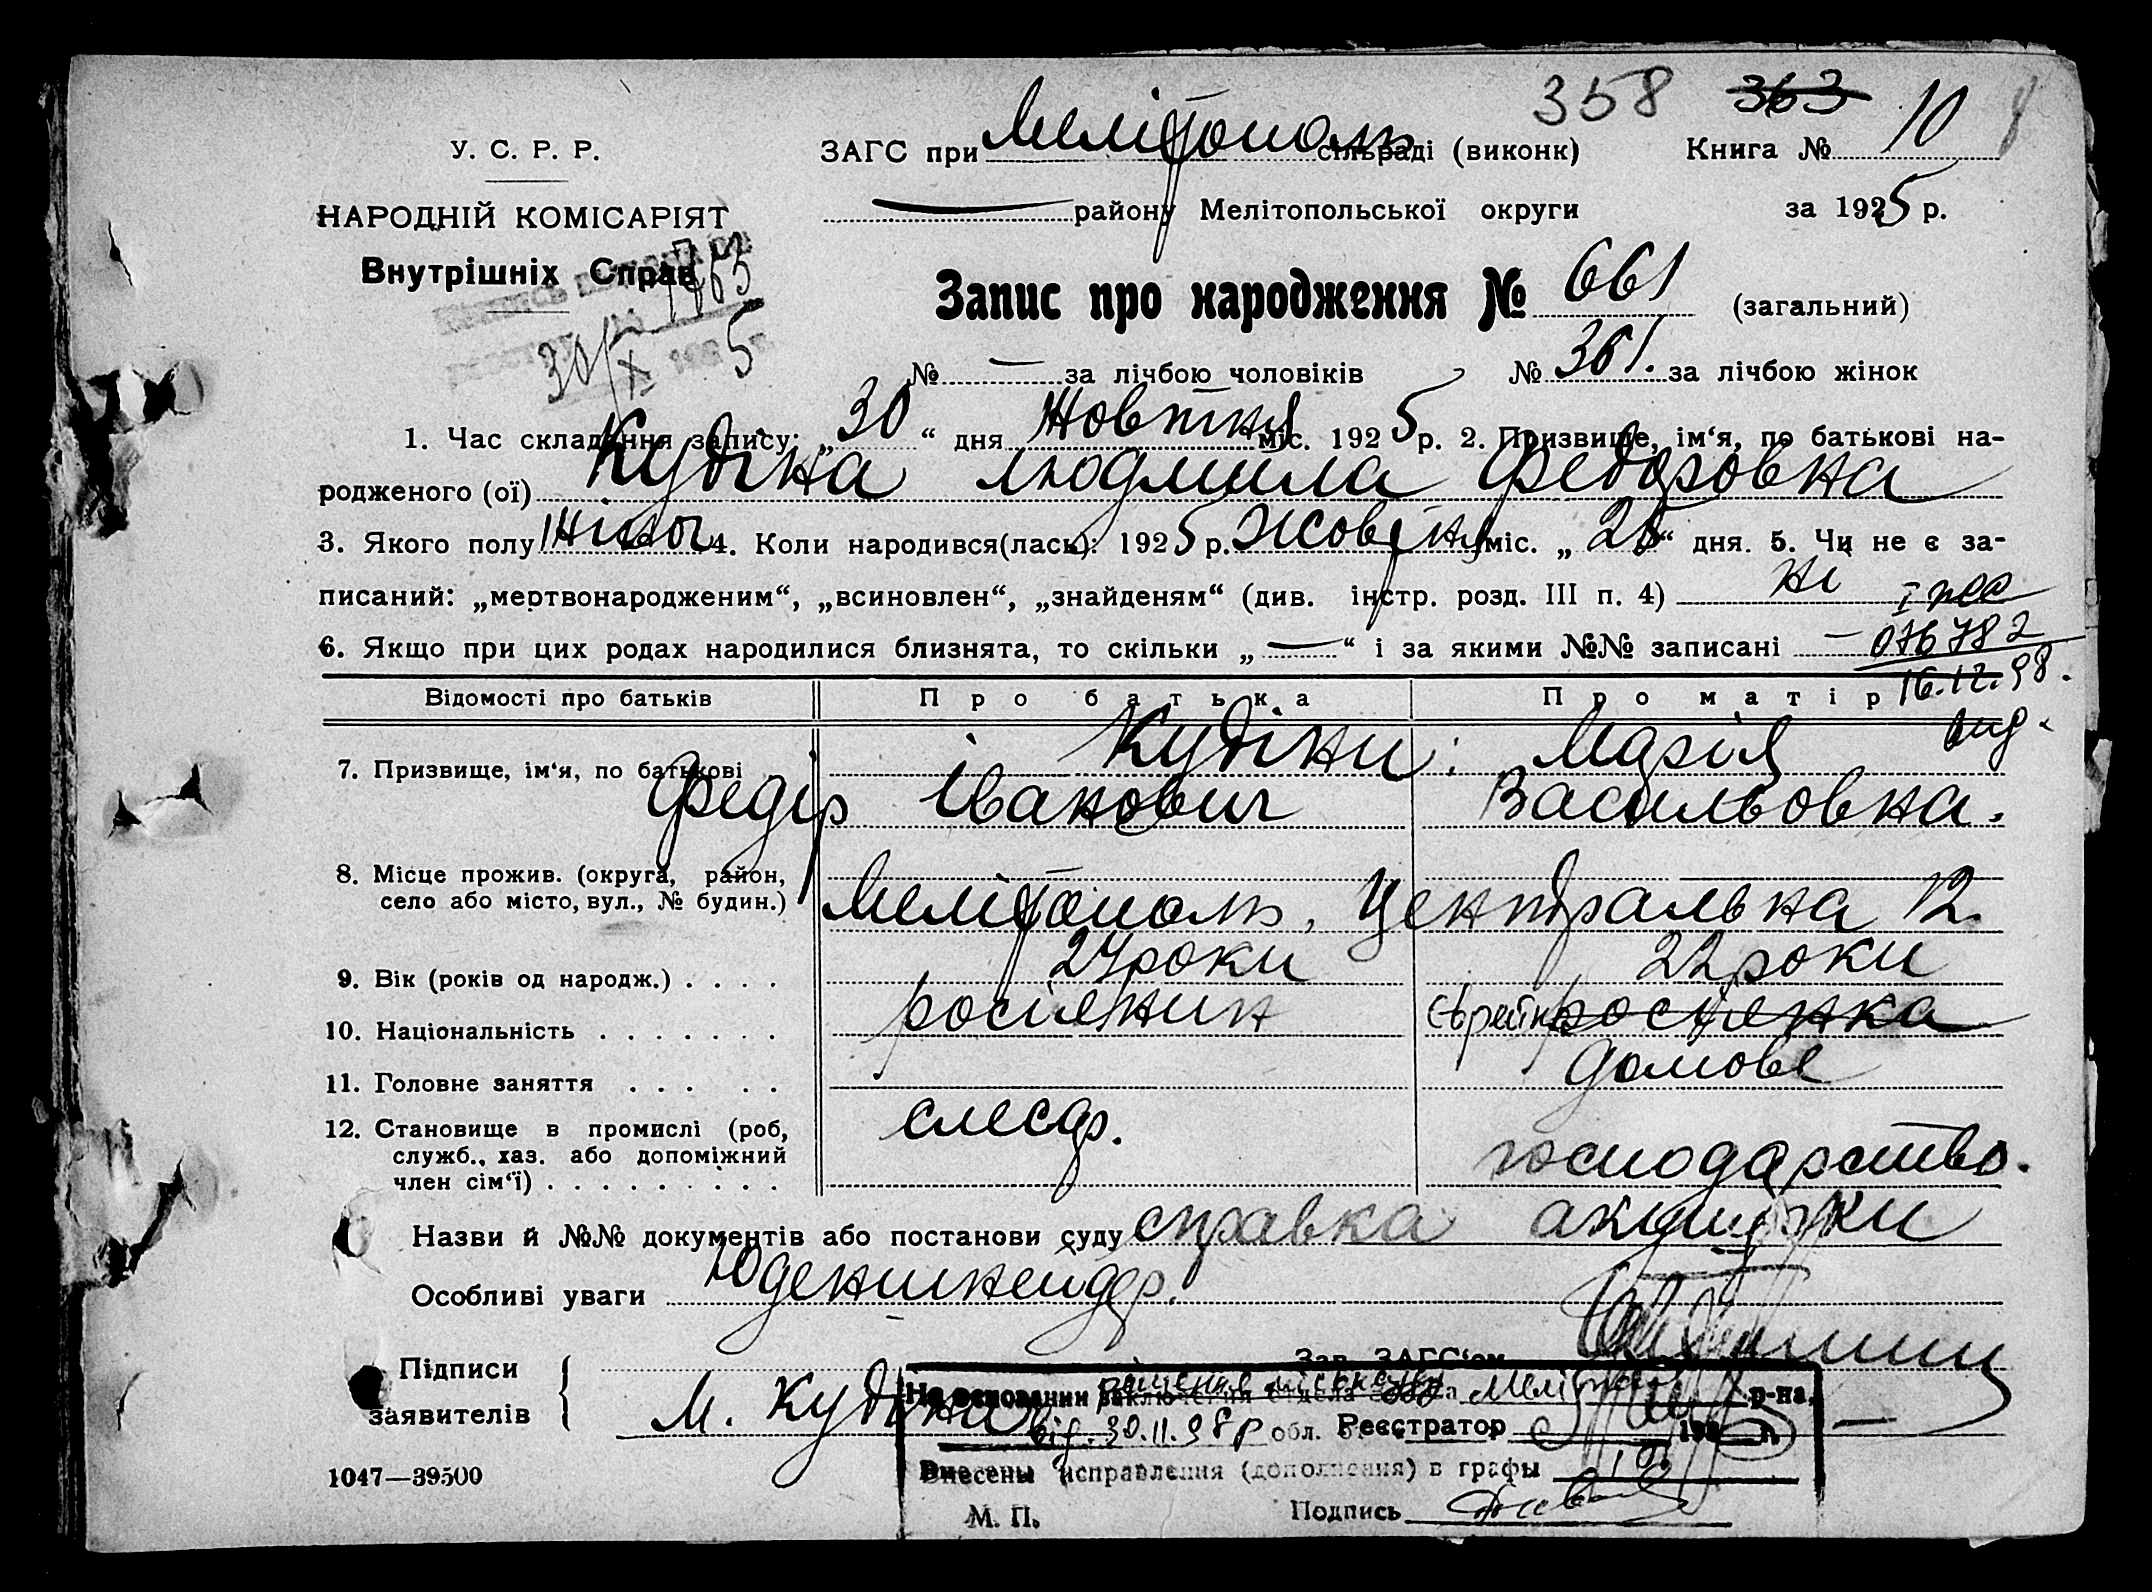 358 363 10
У. С. Р. Р.
ЗАГС при Мелітополь сільраді (виконк) Книга №
НАРОДНІЙ КОМІСАРІЯТ
району Мелітопольської округи за 1925 р.
Внутрішніх Справ
1463
30/X 1925
Запис про народження № 661 (загальний)
№ — за лічбою чоловіків № 361. за лічбою жінок
1. Час складання запису: „30“ дня Жовтня міс. 1925 р. 2. Призвище, ім‘я, по батькові на-
родженого (ої) Кудіна Людмила Федоровна
3. Якого полу жіноч 4. Коли народився(лась): 1925 р. Жовтня міс. „25“ дня. 5. Чи не є за-
писаний: „мертвонародженим“, „всиновлен“, „знайденям“ (див. інстр. розд. III п. 4) ні
6. Якщо при цих родах народилися близнята, то скільки „—“ і за якими №№ записані —
076782
16.12.98.
Відомості про батьків Про батька Про матір
7. Призвище, ім‘я, по батькові Кудіни: Марія
Федір Іванович Васильовна.
8. Місце прожив. (округа, район,
село або місто, вул., № будин.) Мелітополь, Центральна 12.
9. Вік (років од народж.) . . . . 24 роки 22 роки
10. Національність . . . . . . . росіянин Єврейка росіянка
11. Головне заняття . . . . . домове
12. Становище в промислі (роб, слесар.
служб., хаз. або допоміжний господарство.
член сім‘ї) . . . . . . . . .
Назви й №№ документів або постанови суду справка акушерки
Особливі уваги Юденшнейдер.
Підписи Зав. ЗАГС‘ом
заявителів М. Кудіна
На основании заключения отдела р-на,
від. 30.11.98р обл. Реєстратор
1047—39500
Внесены исправления (дополнения) в графы 10.
М. П. Подпись